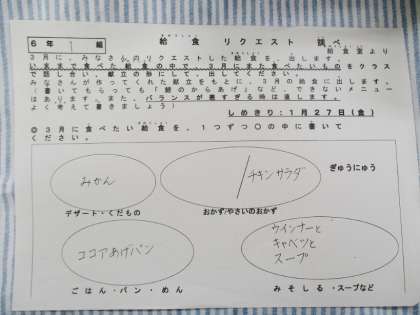 6年 1組 給食リクエスト調べ
給食室より
3月に、みなさんのリクエストした給食を、出します。
いままで食べた給食の中で、3月にまた食べたいものをクラス
で話し合い、献立の形にして、出してください。
みなさんが作ってくれた献立をもとに、3月の給食に出します。
（書いてもらっても「鯨のからあげ」など、できないメニュー
はあります。また、バランスが悪すぎる時は直します。
よく考えて書きましょう）
しめきり：1月27日（金）
◎3月に食べたい給食を、1つずつ○の中に書いて
ください。
みかん
／チキンサラダ
ぎゅうにゅう
デザート・くだもの
おかず/やさいのおかず
ココアあげパン
ウインナーと
キャベツと
スープ
ごはん・パン・めん
みそしる・スープなど